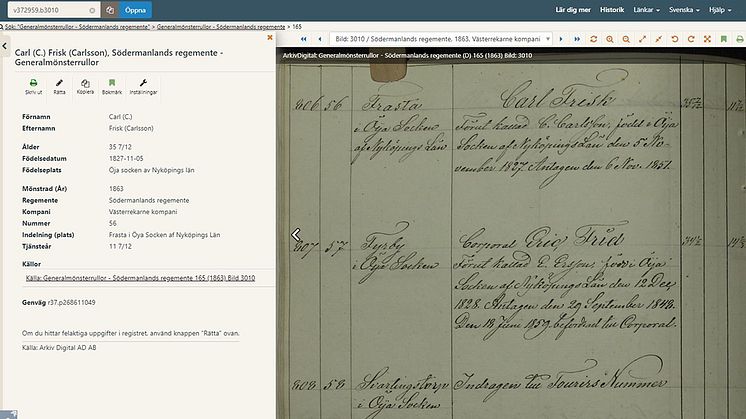 v372959.b3010
Öppna
Lär dig mer
Historik
Länkar
Svenska
Hjälp
Sök: "Generalmönsterrullor - Södermanlands regemente" > Generalmönsterrullor - Södermanlands regemente > 165
Bild: 3010 / Södermanlands regemente, 1863, Västerrekarne kompani
Carl (C.) Frisk (Carlsson), Södermanlands regemente -
Generalmönsterrullor
Skriv ut
Rätta
Kopiera
Bokmärk
Inställningar
Förnamn Carl (C.)
Efternamn Frisk (Carlsson)
Ålder 35 7/12
Födelsedatum 1827-11-05
Födelseplats Öja socken av Nyköpings län
Mönstrad (År) 1863
Regemente Södermanlands regemente
Kompani Västerrekarne kompani
Nummer 56
Indelning (plats) Frasta i Öya Socken af Nyköpings Län
Tjänsteår 11 7/12
Källor
Källa: Generalmönsterrullor - Södermanlands regemente 165 (1863) Bild 3010
Genväg r37.p268611049
Om du hittar felaktiga uppgifter i registret, använd knappen "Rätta" ovan.
Källa: Arkiv Digital AD AB
ArkivDigital: Generalmönsterrullor - Södermanlands regemente (D) 165 (1863) Bild: 3010
806 56 Frasta Carl Frisk 35 7/12
i Öya Socken Förut kallad C. Carlsson, född i Öja
af Nyköpings Län Socken af Nyköpings Län den 5 No-
vember 1827. Antagen den 6 Nov. 1851.
807 57 Tyrby Corporal Eric Frid
i Öja Socken Förut kallad E. Ersson, född i Öja
Socken af Nyköpings Län den 12 Dec
1828. Antagen den 29 September 1848.
Den 18 Juni 1859 befordrad till Corporal.
808 58 Svarlingstorp Indragen till Tourirs Nummer
i Öja Socken